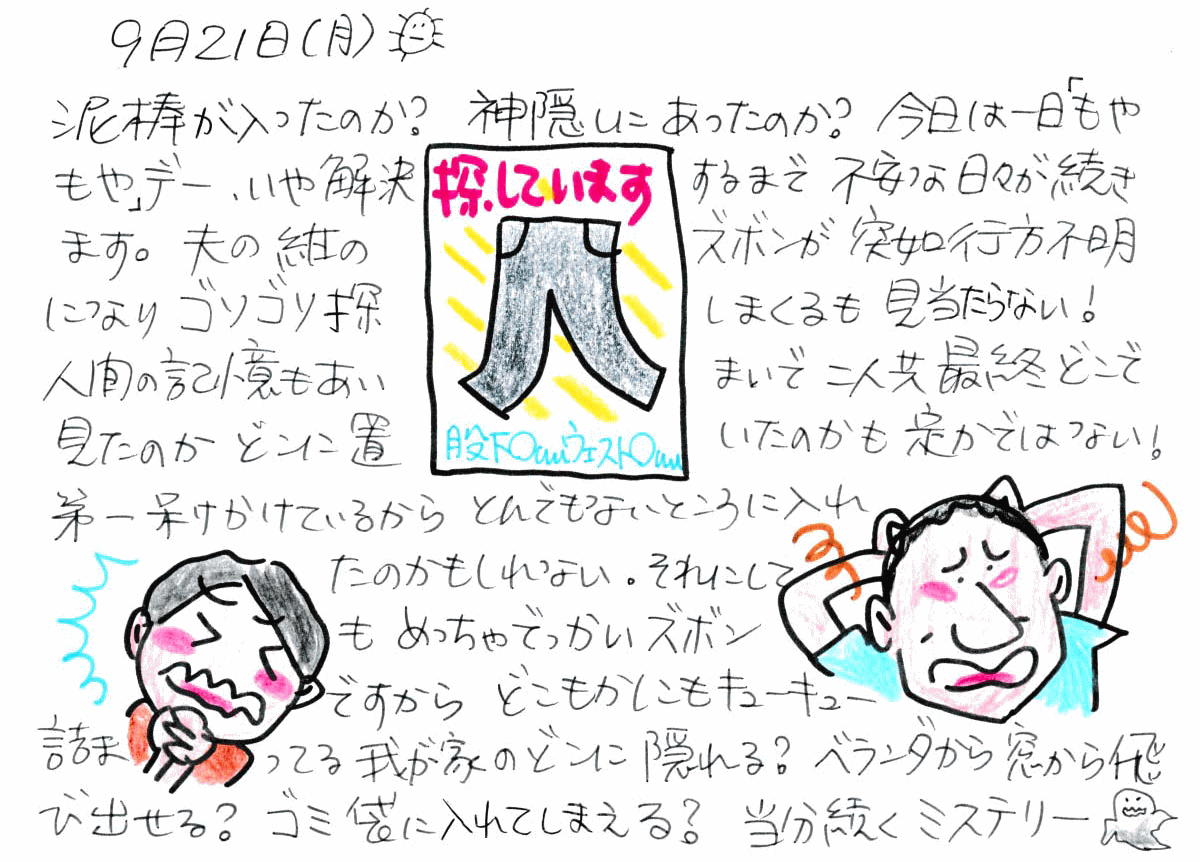 9月21日(月)
泥棒が入ったのか? 神隠しにあったのか? 今日は一日「もや
もや」デー、いや解決するまで不安な日々が続き
ます。夫の紺のズボンが突如行方不明
になりゴソゴソ探しまくるも見当たらない!
人間の記憶もあいまいで二人共最終どこで
見たのかどこに置いたのかも定かではない!
探しています
股下○cmウェスト○cm
第一呆けかけているからとんでもないところに入れ
たのかもしれない。それにして
もめっちゃでっかいズボン
ですからどこもかしこもキューキュー
詰まってる我が家のどこに隠れる?ベランダから窓から飛
び出せる?ゴミ袋に入れてしまえる? 当分続くミステリー